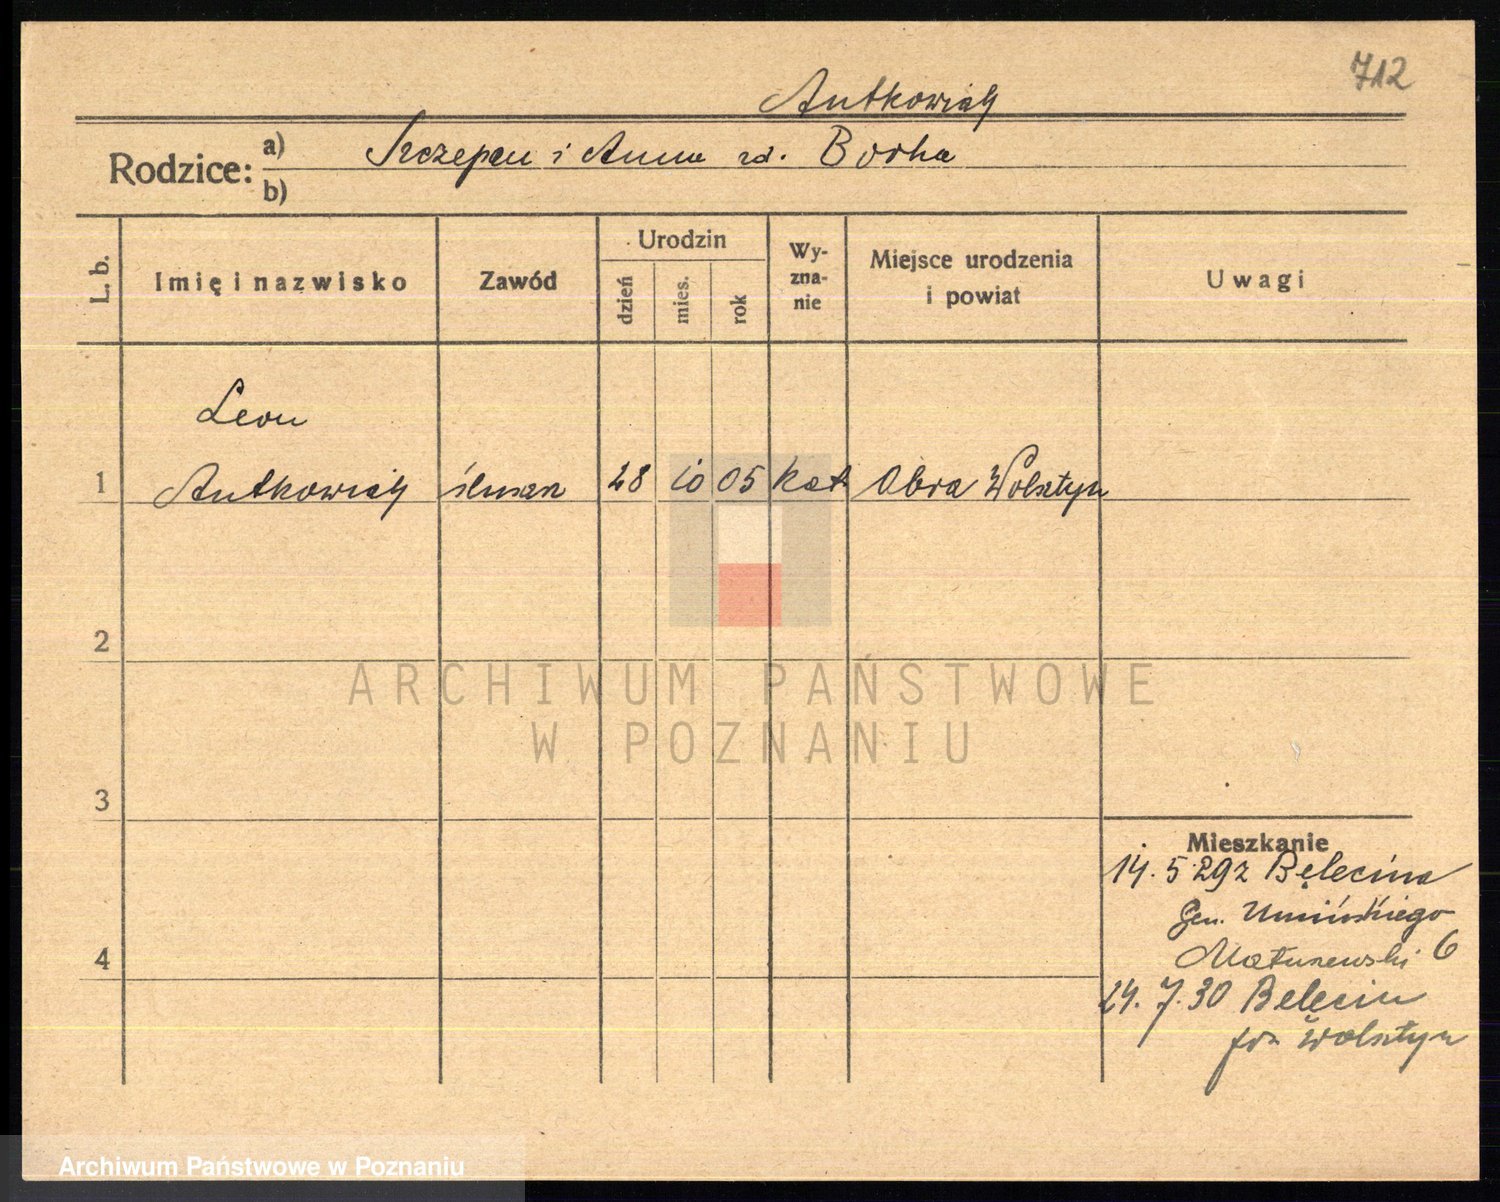 712
Antkowiak
Rodzice:
a) Szczepan i Anna zd. Borha
b)
L. b.
Imię i nazwisko
Zawód
Urodzin
dzień
mies.
rok
Wy-
zna-
nie
Miejsce urodzenia
i powiat
Uwagi
Leon
1 Antkowiak ślusarz 28 10 05 kat Obra Wolsztyn
2
3
4
Mieszkanie
14. 5 29 z Bęlecina
Gen. Umińskiego
Matuszewski 6
24. 7. 30 Belecin
pow Wolsztyn
ARCHIWUM PAŃSTWOWE
W POZNANIU
Archiwum Państwowe w Poznaniu